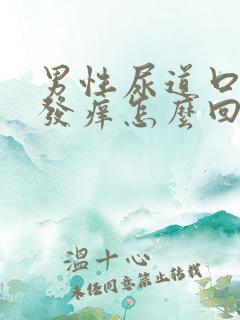 男性尿道口
發癢怎麼回
溫十心
未经同意禁止转载